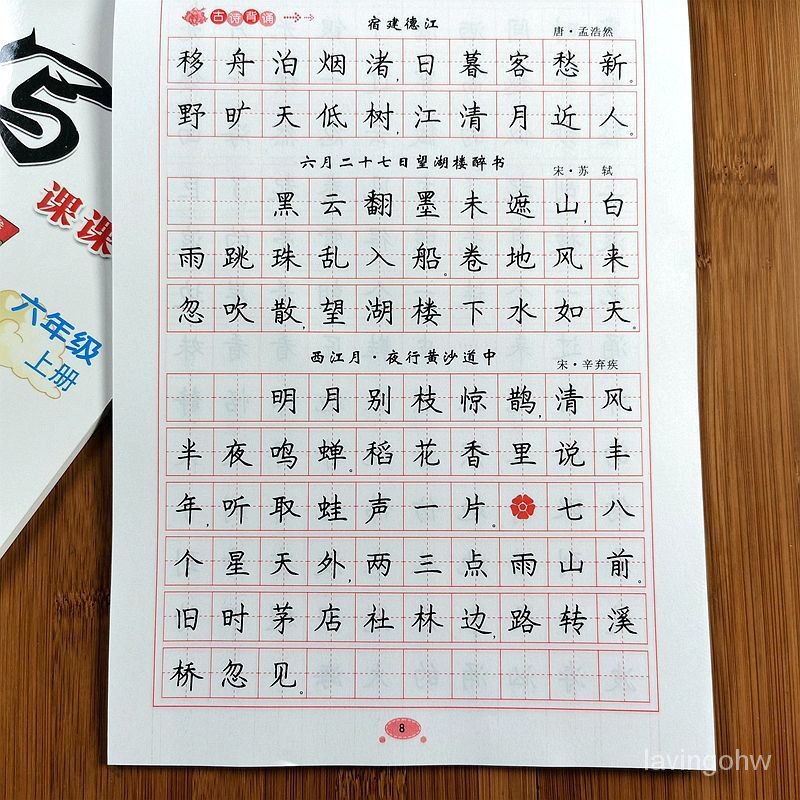 古诗背诵
宿建德江
唐·孟浩然
移舟泊烟渚,日暮客愁新。
野旷天低树,江清月近人。
六月二十七日望湖楼醉书
宋·苏 轼
黑云翻墨未遮山,白
雨跳珠乱入船。卷地风来
忽吹散,望湖楼下水如天。
西江月·夜行黄沙道中
宋·辛弃疾
明月别枝惊鹊,清风
半夜鸣蝉。稻花香里说丰
年,听取蛙声一片。七八
个星天外,两三点雨山前。
旧时茅店社林边,路转溪
桥忽见。
8
课课
六年级
上册
lavingohw